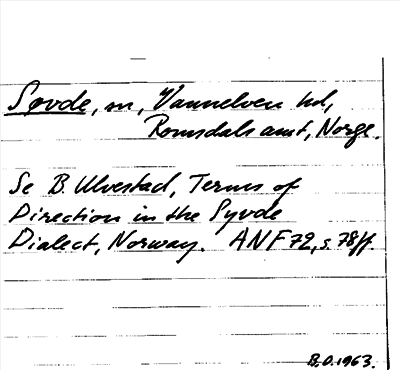 Søvde, sn, Vannelven hd,
Romsdals amt, Norge.
Se B. Ulvestad, Terms of
Direction in the Syvde
Dialect, Norway. ANF 72, s. 78ff.
B.O. 1963.